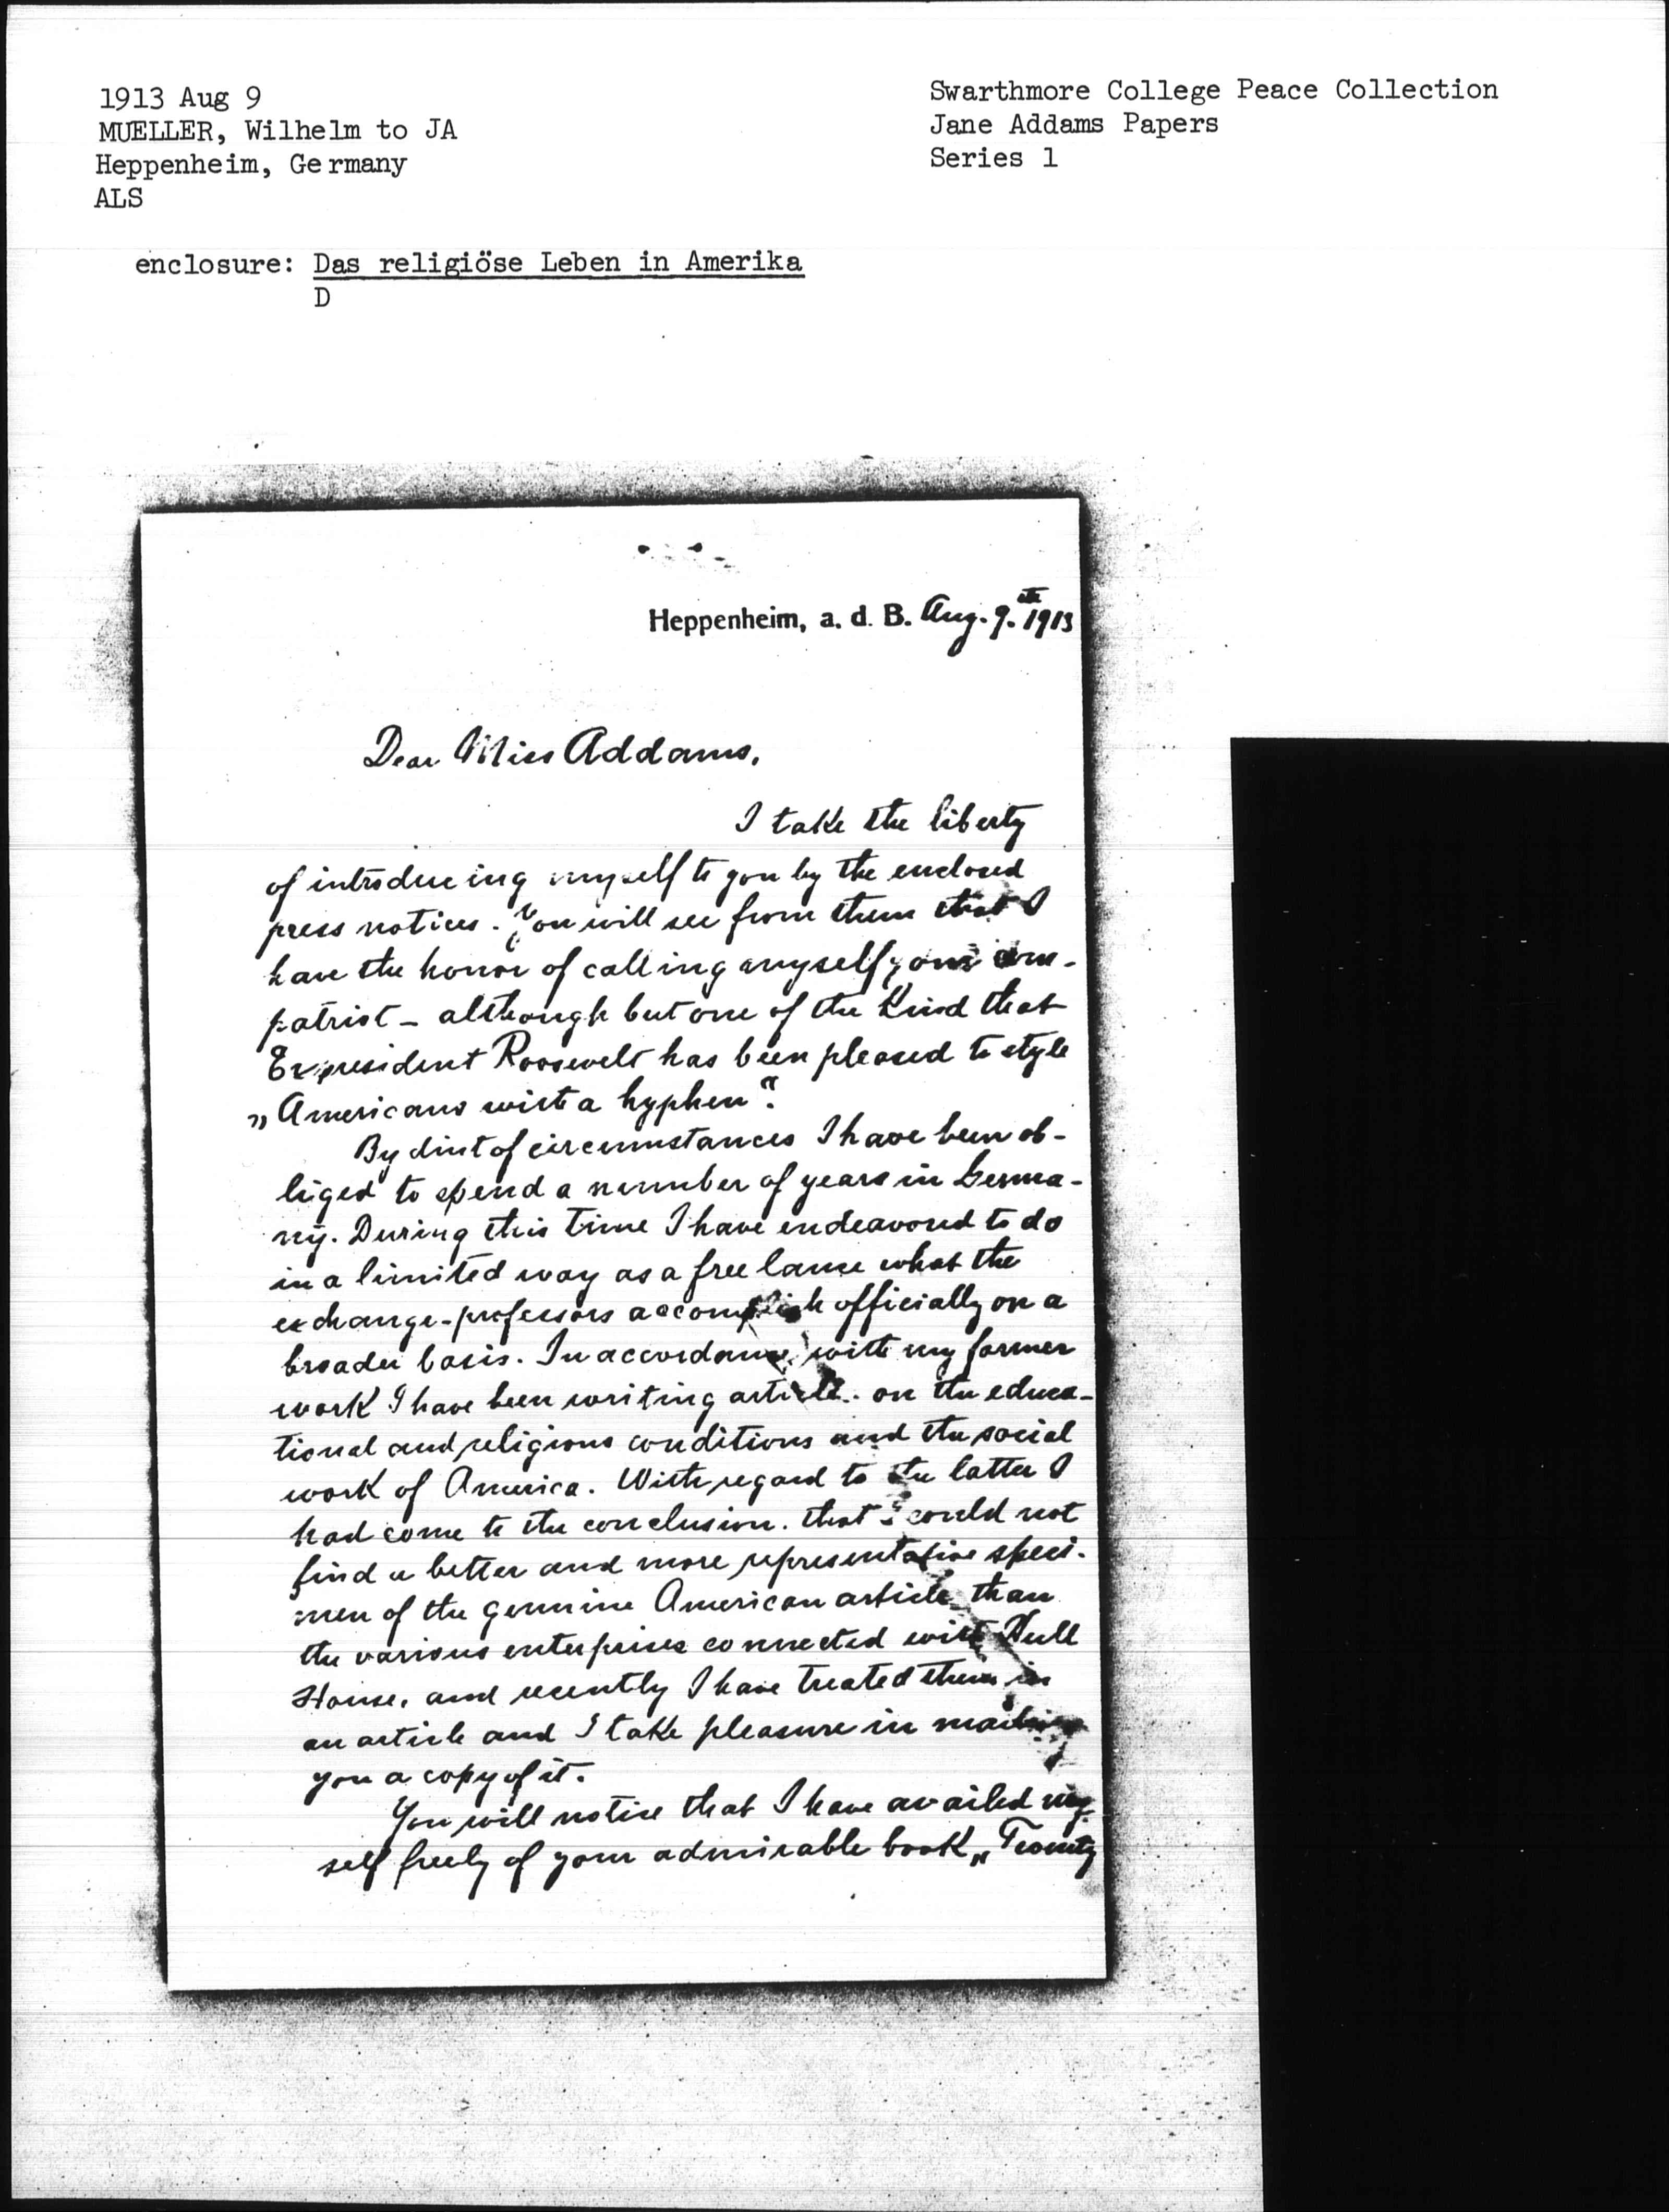 1913 Aug 9
MUELLER, Wilhelm to JA
Heppenheim, Germany
ALS
Swarthmore College Peace Collection
Jane Addams Papers
Series 1
enclosure: Das religiöse Leben in Amerika
D
Heppenheim, a. d. B. Aug. 9.th 1913
Dear Miss Addams,
I take the liberty
of introducing myself to you by the enclosed
press notices. You will see from them that I
have the honor of calling myself your com-
patriot - although but one of the kind that
Expresident Roosevelt has been pleased to style
„Americans with a hyphen“.
By dint of circumstances I have been ob-
liged to spend a number of years in Germa-
ny. During this time I have endeavored to do
in a limited way as a free lance what the
exchange-professors accomplish officially on a
broader basis. In accordance with my former
work I have been writing articles on the educa-
tional and religious conditions and the social
work of America. With regard to the latter I
had come to the conclusion. that I could not
find a better and more representative speci-
men of the genuine American article than
the various enterprises connected with Hull
House, and recently I have treated them in
an article and I take pleasure in mailing
you a copy of it.
You will notice that I have availed my-
self freely of your admirable book „Twenty